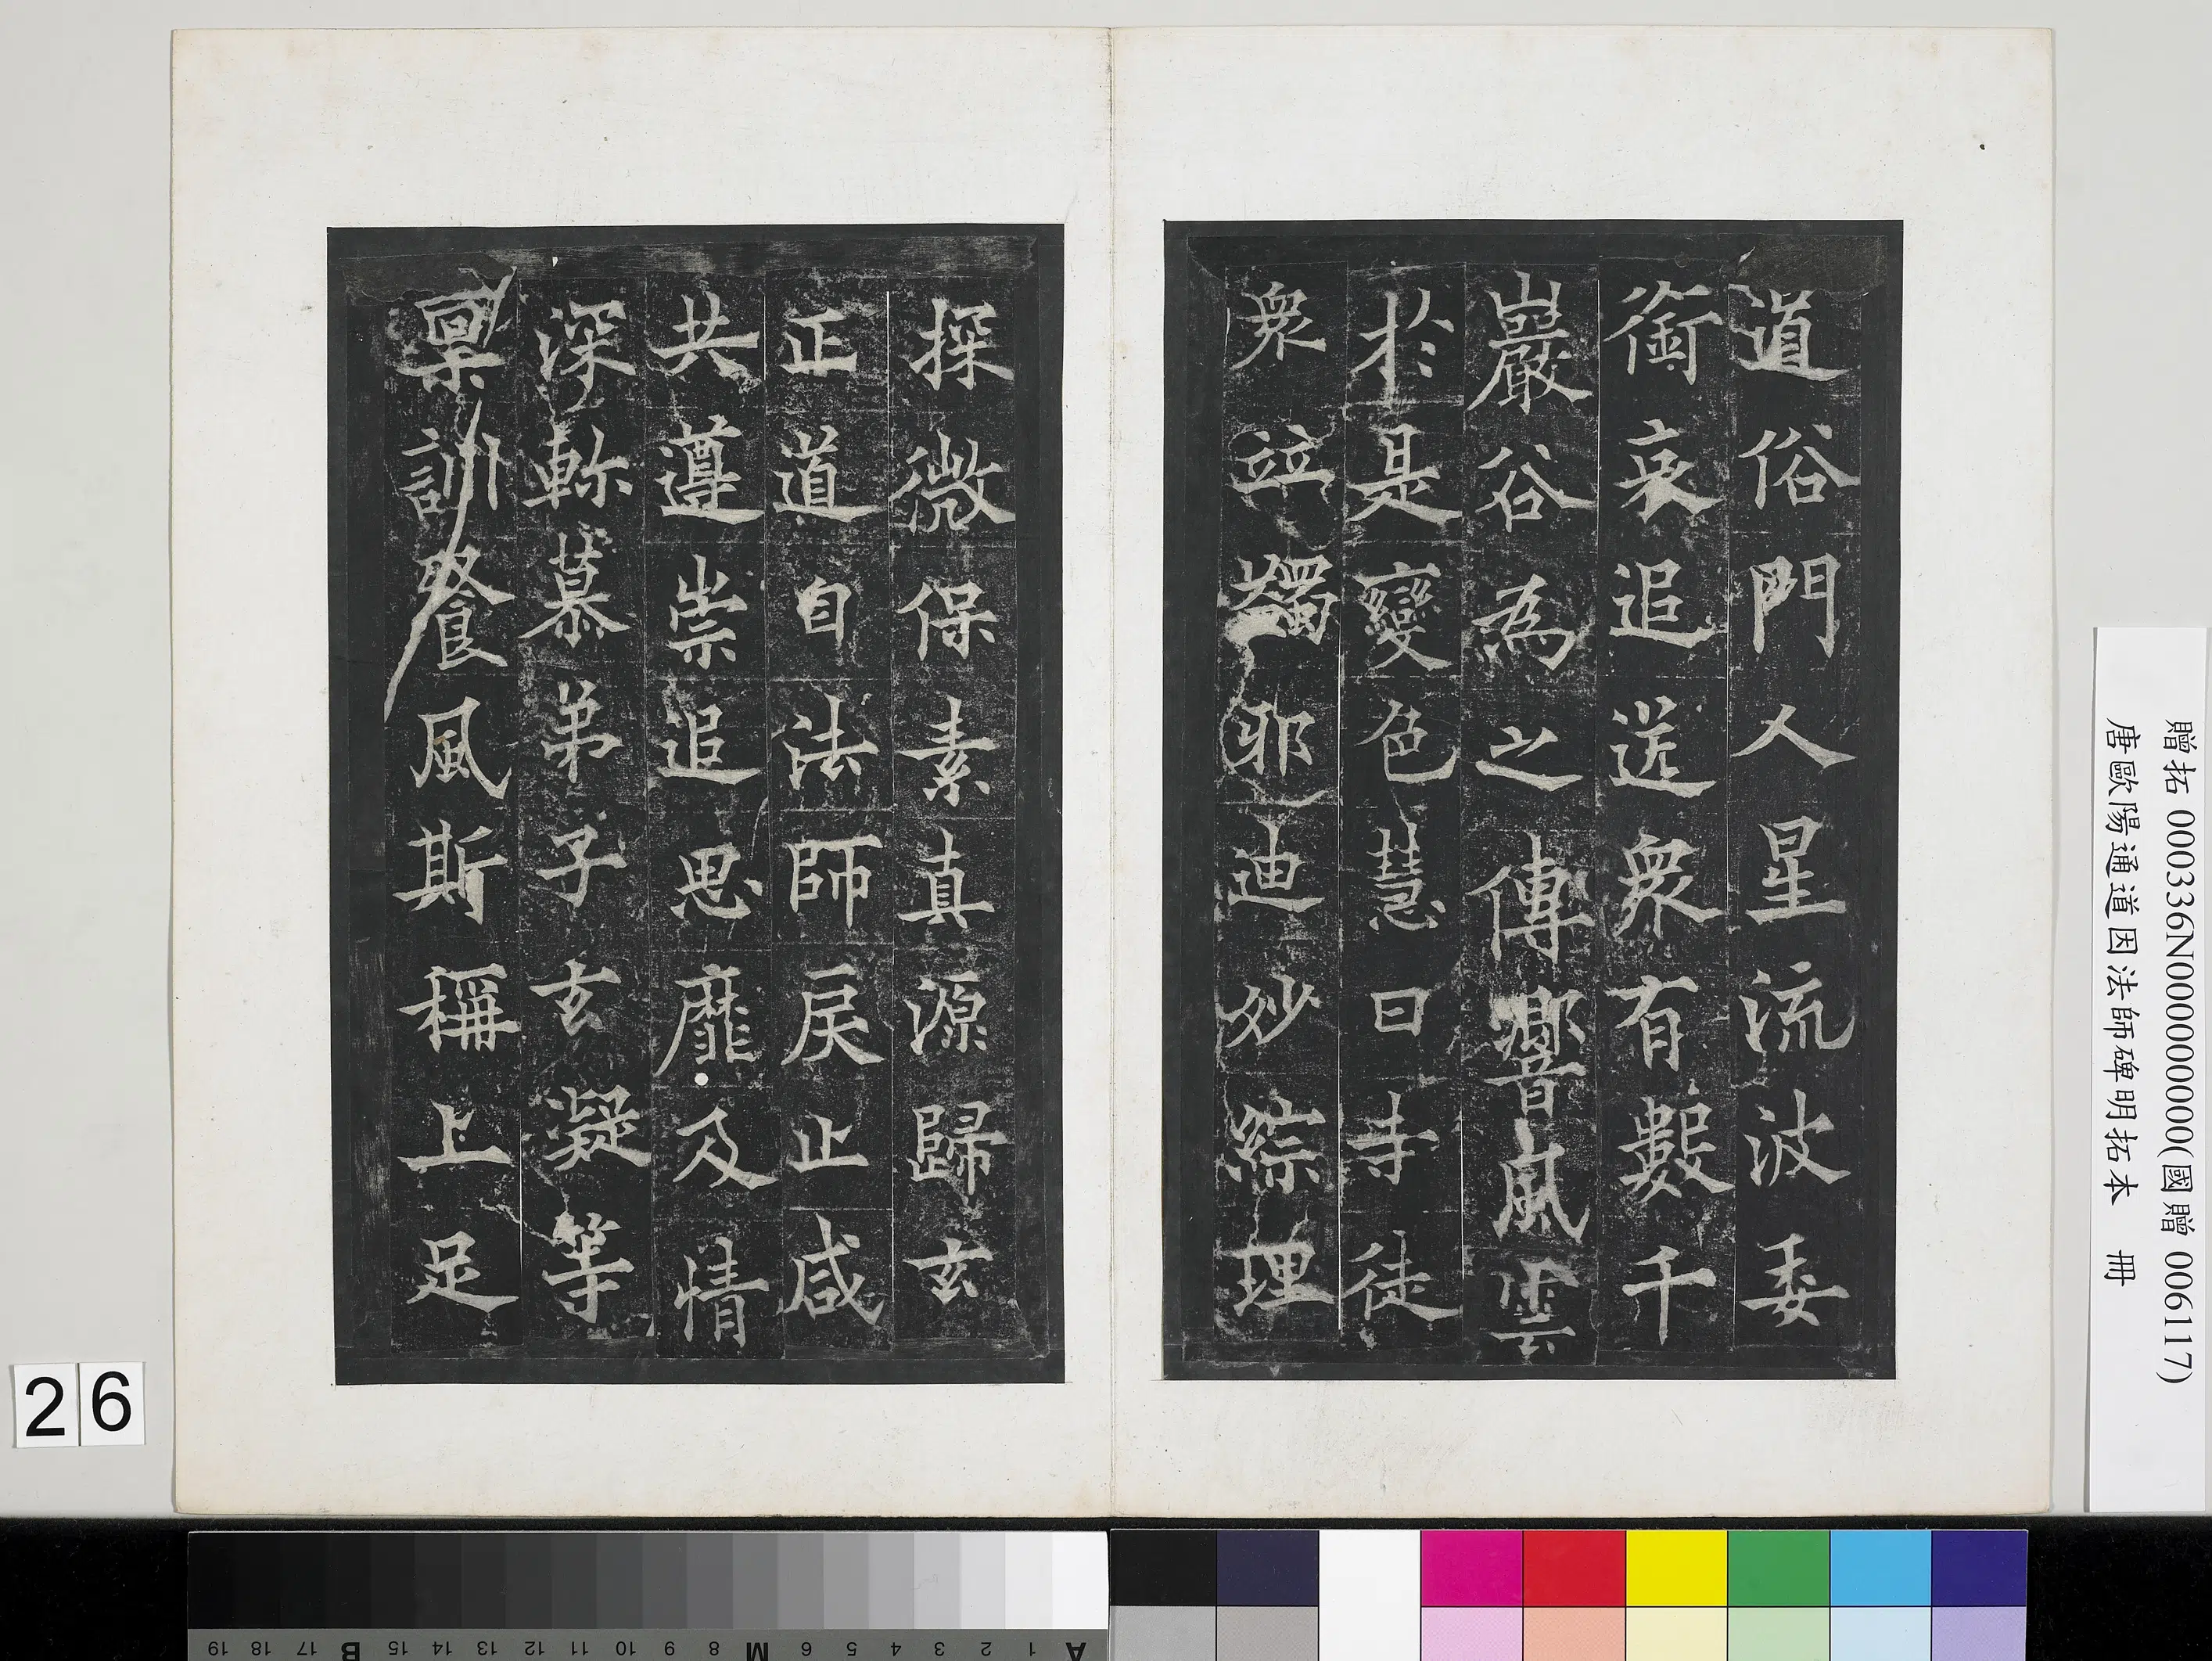 道俗門人星流波委
銜哀追送衆有數千
巖谷為之傳響風雲
於是變色慧日寺徒
衆竝蠲邪迪妙綜理
探微保素真源歸玄
正道自法師戾止咸
共遵崇追思靡及情
深軫慕弟子玄凝等
禀訓餐風斯稱上足
贈拓 000336N000000000(國贈 006117)
唐歐陽通道因法師碑明拓本 冊
26
A 1 2 3 4 5 6 M 8 9 10 11 12 13 14 15 B 17 18 19